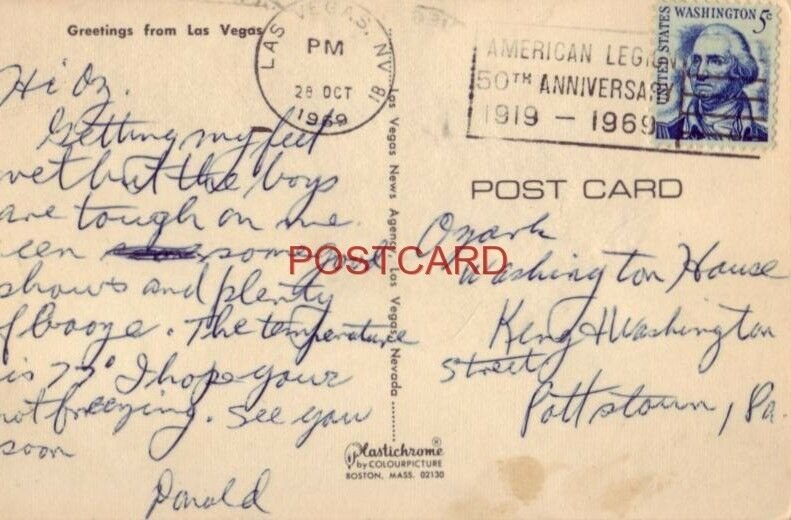 Greetings from Las Vegas
LAS VEGAS, NV
PM
28 OCT
1969
AMERICAN LEGION
50TH ANNIVERSARY
1919 - 1969
UNITED STATES
WASHINGTON 5c
POST CARD
Hi Oz.
Getting my feet
wet but the boys
are tough on me.
een some good
shows and plenty
of booze. The temperature
is 77° I hope your
not freezing. See you
soon
Donald
Las Vegas News Agency, Las Vegas, Nevada
Ozark
Washington House
King & Washington
Street
Pottstown, Pa.
POSTCARD
Plastichrome®
by COLOURPICTURE
BOSTON, MASS. 02130